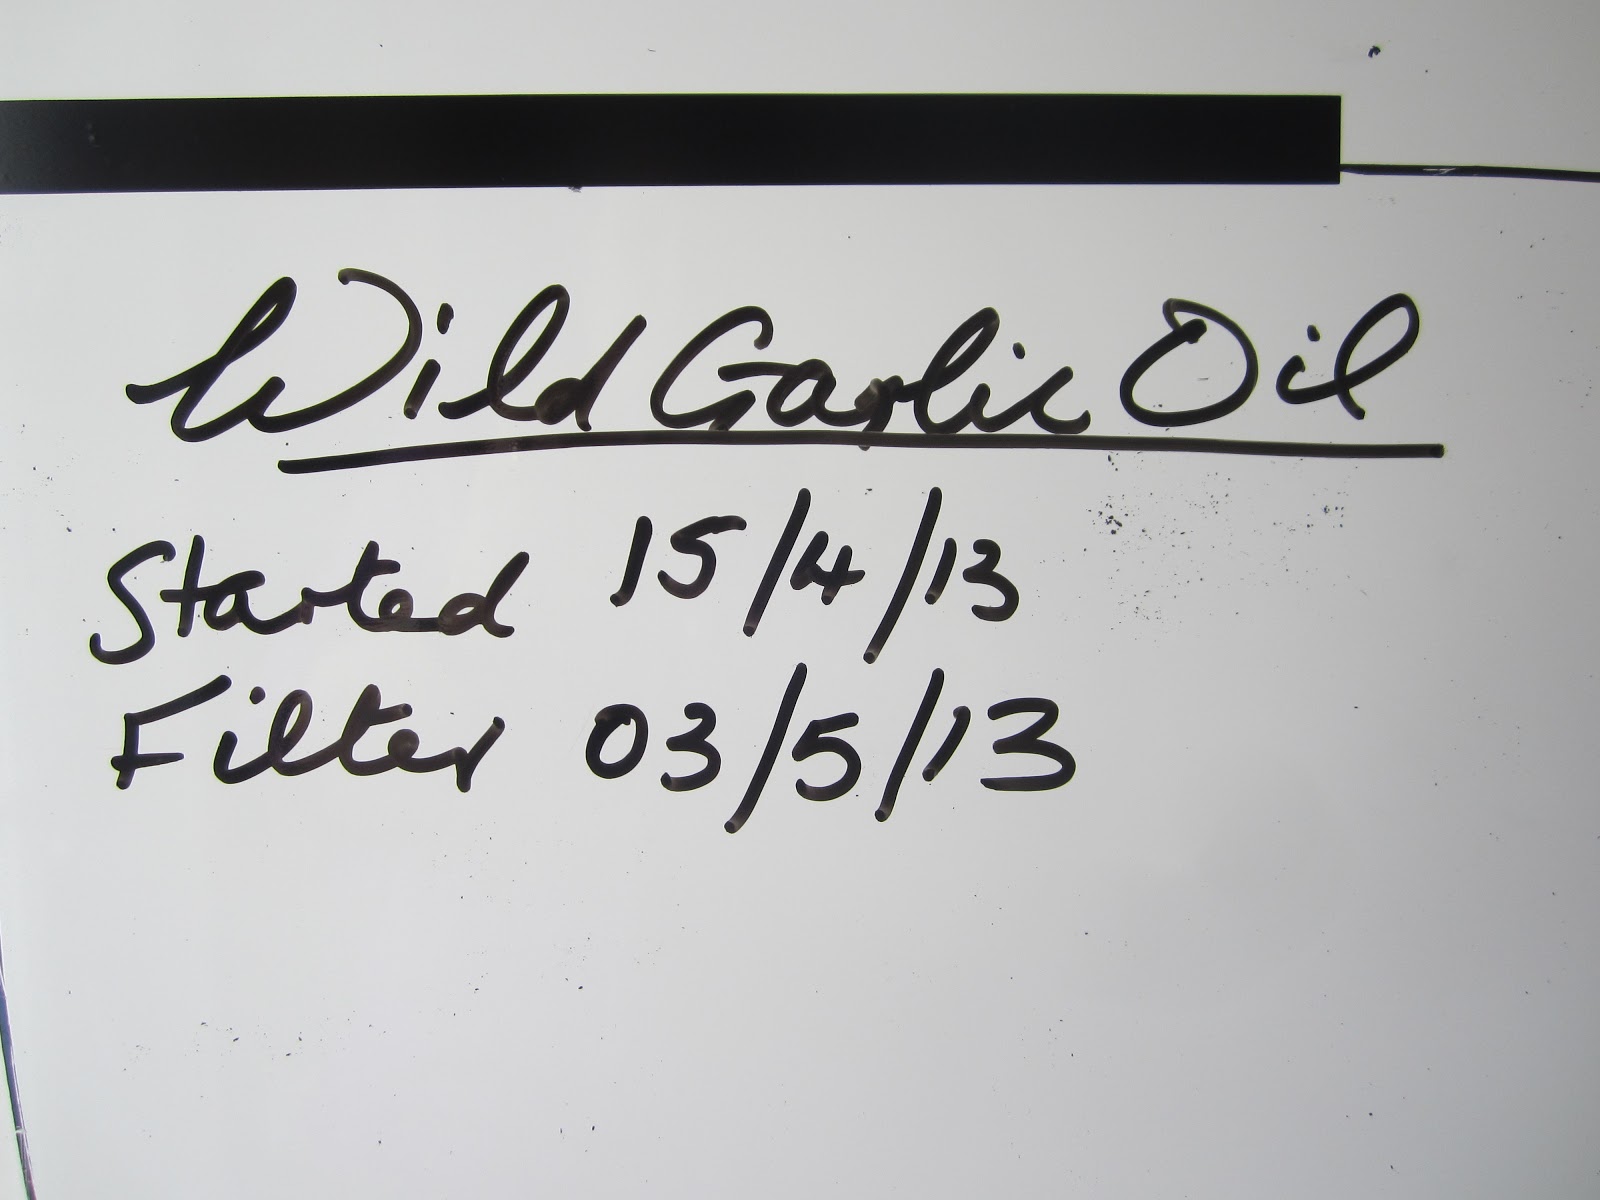 Wild Garlic Oil
Started 15/4/13
Filter 03/5/13